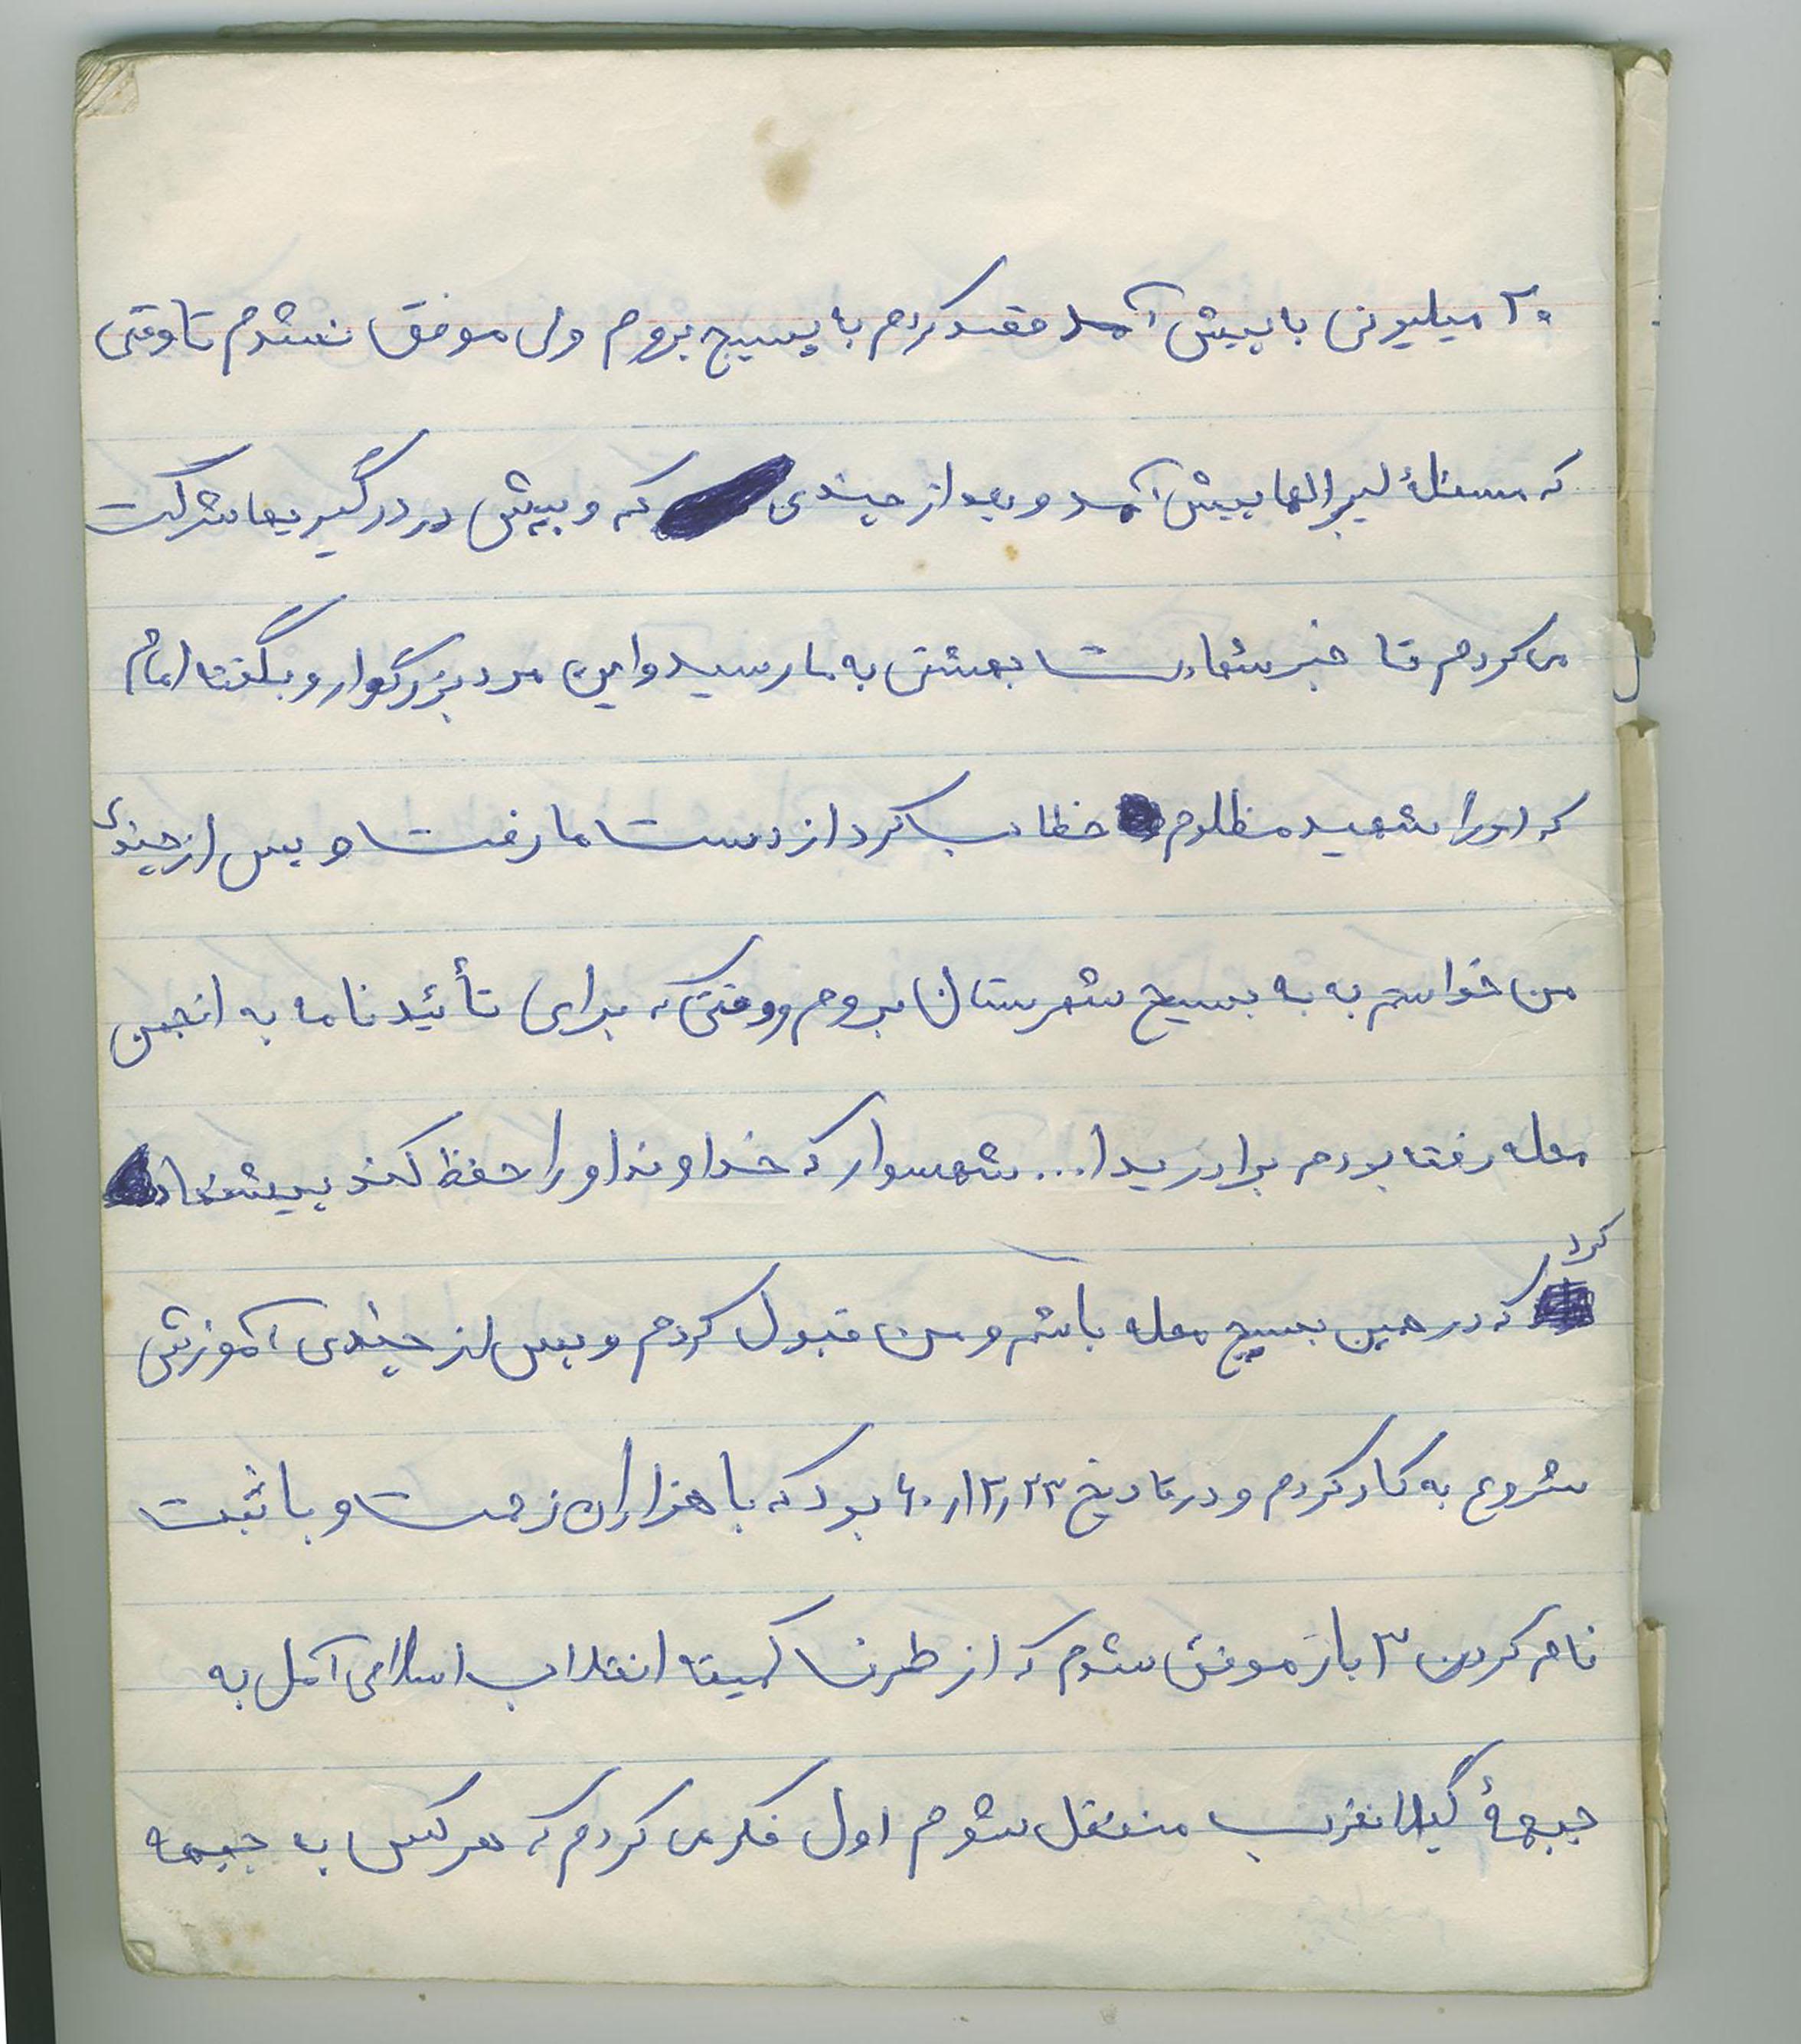 ۲۰ میلیونی با پیش آمد قصد کردم با بسیج بروم ولی موفق نشدم تا وقتی
که مسئلهٔ لیبرالها پیش آمد و بعد از چندی که و بیش در درگیریها شرکت
می کردم تا خبر شهادت بهشتی به ما رسید و این مرد بزرگوار و بگفته امام
که او را شهید مظلوم خطاب کرد از دست ما رفت و پس از چندی
من خواستم به به بسیج شهرستان بروم و وقتی که برای تأئید نامه به انجمن
محله رفته بودم برادر یدا... شهسوار که خداوند او را حفظ کند پیشنهاد
کرد که در همین بسیج محله باشم و من قبول کردم و پس از چندی آموزش
شروع به کار کردم و در تاریخ ۶۰٫۱۲٫۲۳ بود که با هزاران زحمت و با ثبت
نام کردن ۳ بار موفق شدم که از طرف کمیته انقلاب اسلامی آمل به
جبههٔ گیلانغرب منتقل شوم اول فکر می کردم که هر کس به جبهه